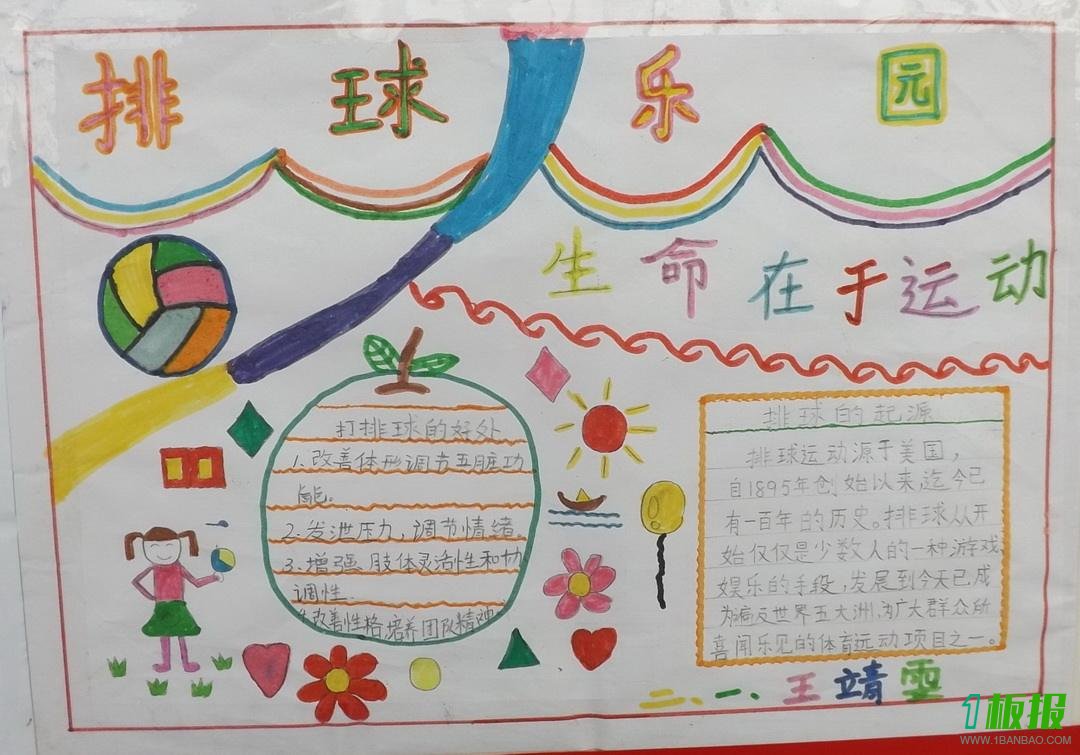 排球乐园
生命在于运动
打排球的好处
1.改善体形调节五脏功
能。
2.发泄压力,调节情绪
3.增强肢体灵活性和协
调性.
改善性格培养团队精神
排球的起源
排球运动源于美国,
自1895年创始以来,迄今已
有一百年的历史。排球从开
始仅仅是少数人的一种游戏
娱乐的手段,发展到今天已成
为遍及世界五大洲,为广大群众所
喜闻乐见的体育运动项目之一。
二、一、王靖雯
1板报
WWW.1BANBAO.COM